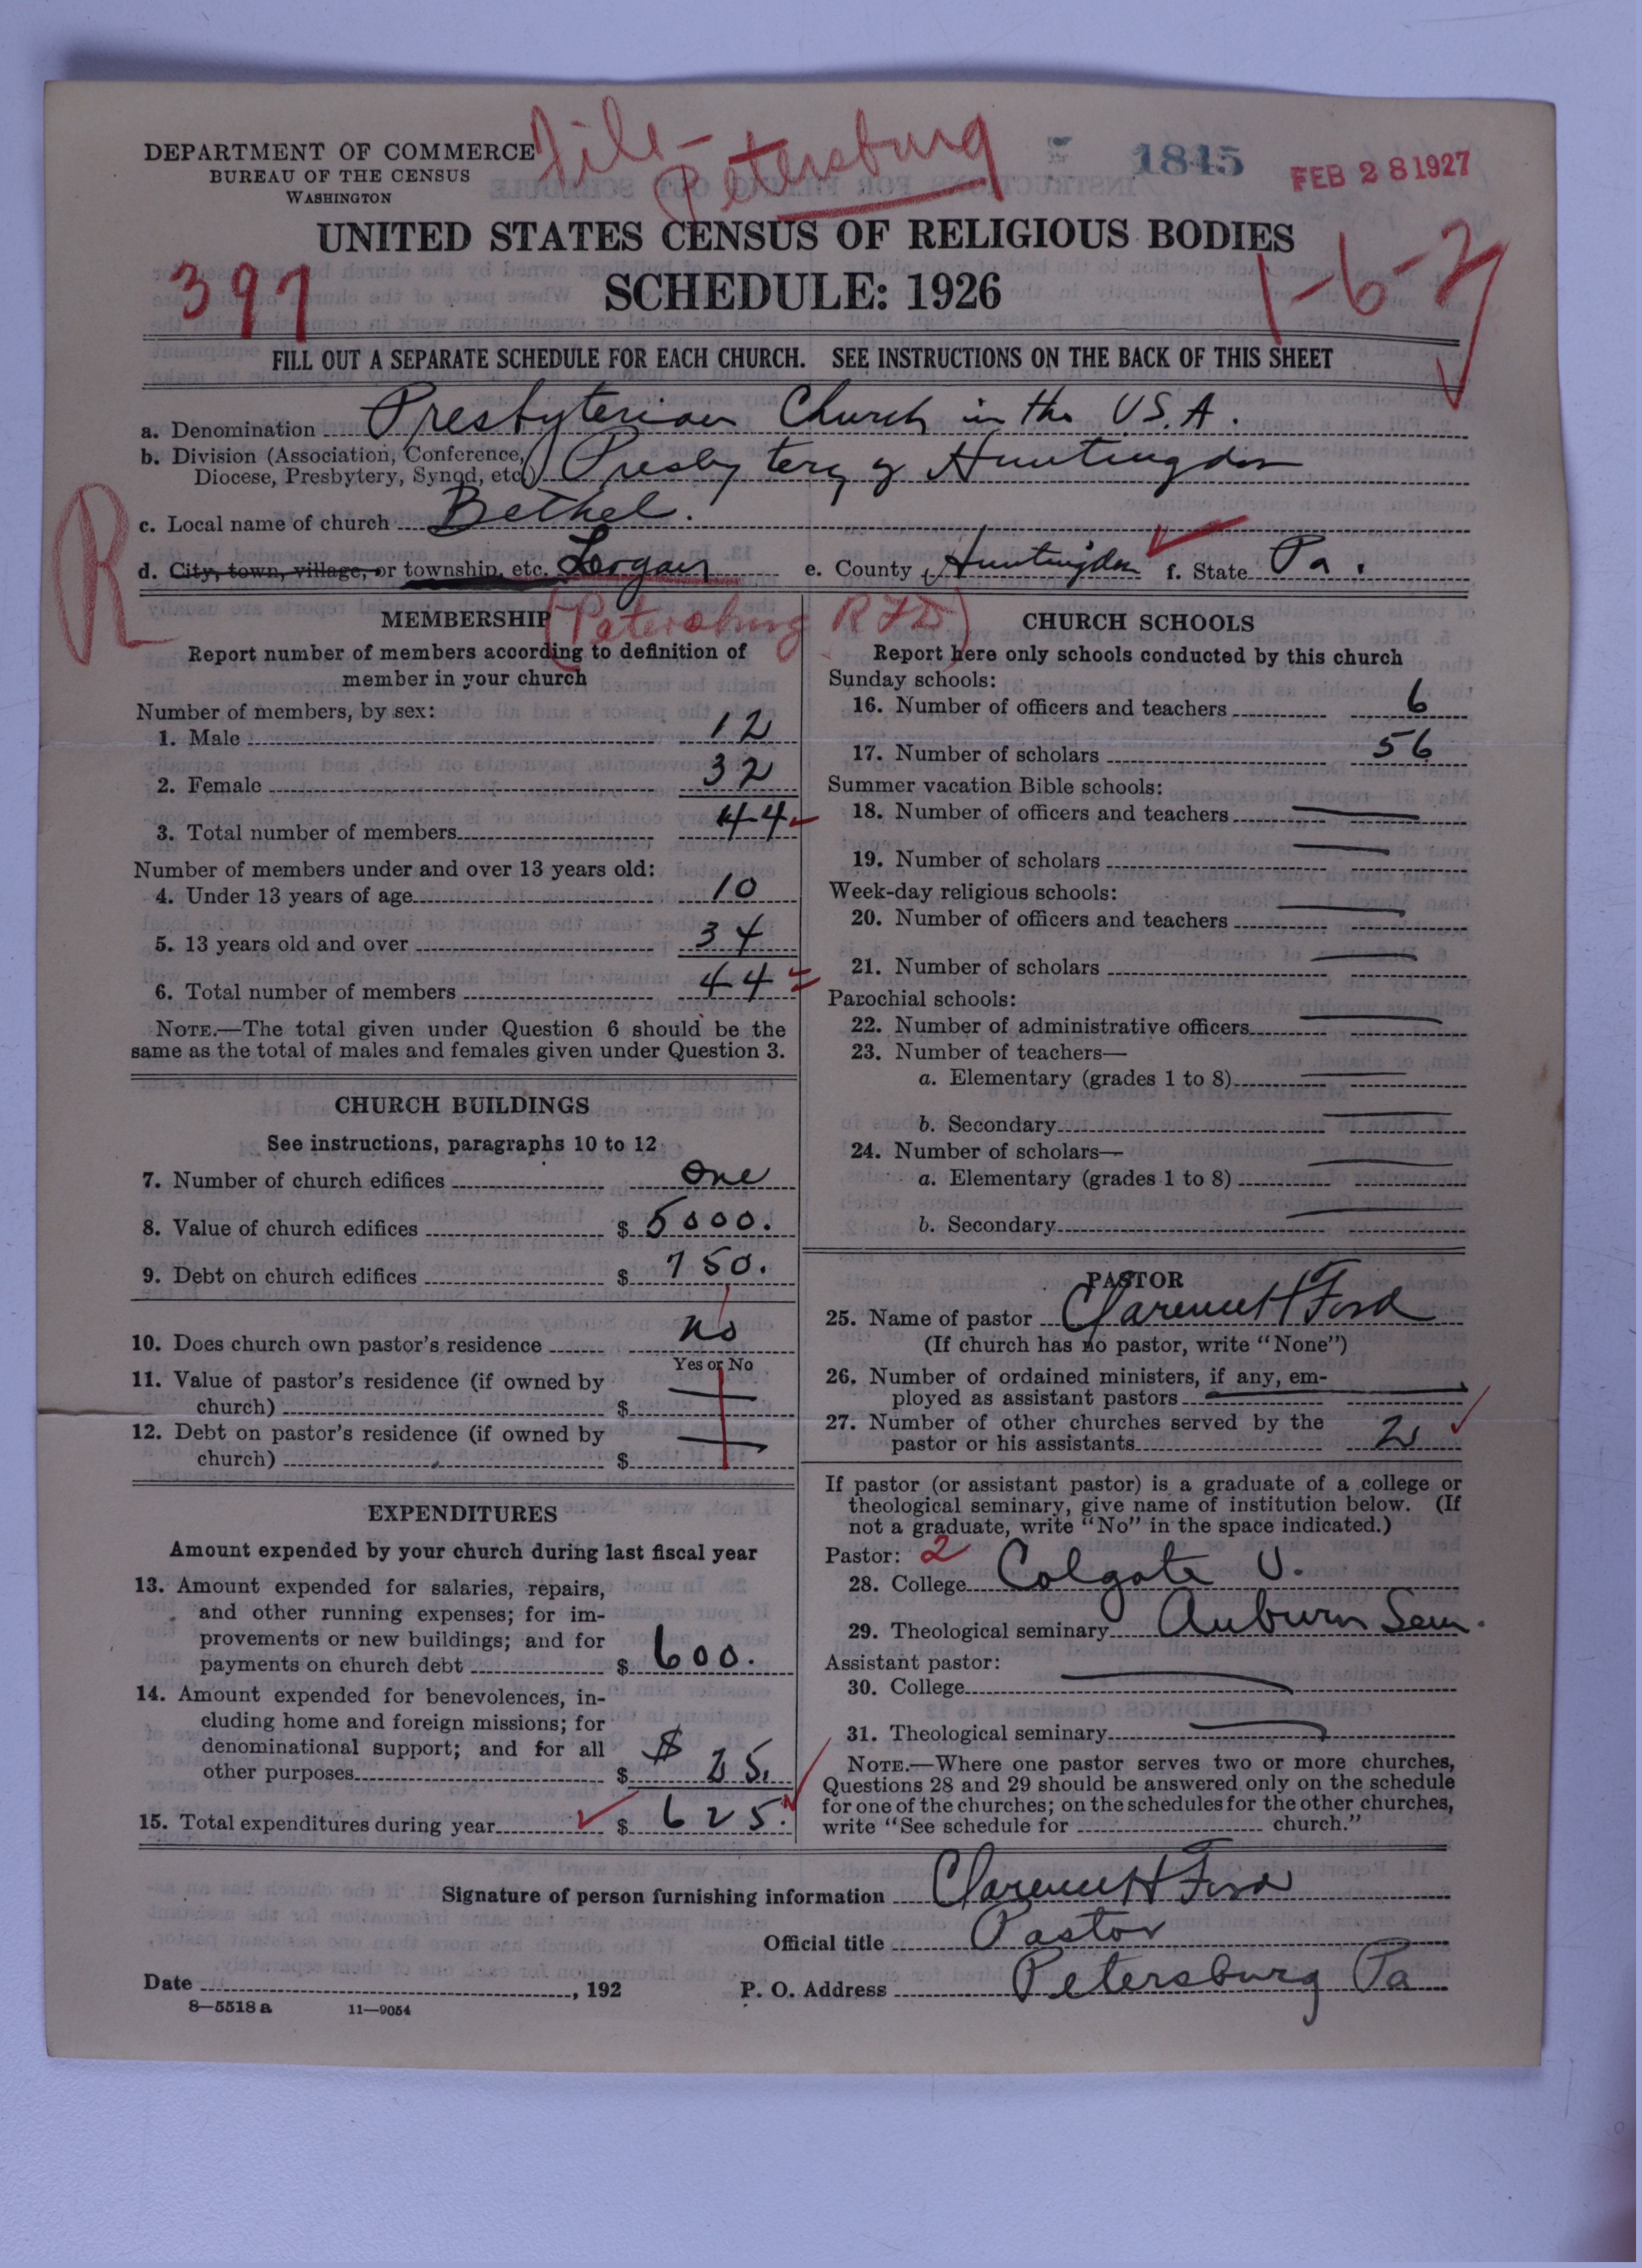 File-
Petersburg
1845
FEB 28 1927
DEPARTMENT OF COMMERCE
BUREAU OF THE CENSUS
WASHINGTON
UNITED STATES CENSUS OF RELIGIOUS BODIES
397
SCHEDULE: 1926
1-6-2
FILL OUT A SEPARATE SCHEDULE FOR EACH CHURCH. SEE INSTRUCTIONS ON THE BACK OF THIS SHEET
a. Denomination Presbyterian Church in the U.S.A.
b. Division (Association, Conference,
Diocese, Presbytery, Synod, etc.) Presbytery of Huntingdon
R
c. Local name of church Bethel.
d. City, town, village, or township, etc. Logan e. County Huntingdon f. State Pa.
(Petersburg RFD)
MEMBERSHIP
Report number of members according to definition of
member in your church
Number of members, by sex:
1. Male 12
2. Female 32
3. Total number of members 44
Number of members under and over 13 years old:
4. Under 13 years of age 10
5. 13 years old and over 34
6. Total number of members 44
NOTE.—The total given under Question 6 should be the
same as the total of males and females given under Question 3.
CHURCH BUILDINGS
See instructions, paragraphs 10 to 12
7. Number of church edifices One
8. Value of church edifices $ 5000.
9. Debt on church edifices $ 750.
10. Does church own pastor's residence No
Yes or No
11. Value of pastor's residence (if owned by
church) $
12. Debt on pastor's residence (if owned by
church) $
EXPENDITURES
Amount expended by your church during last fiscal year
13. Amount expended for salaries, repairs,
and other running expenses; for im-
provements or new buildings; and for
payments on church debt $ 600.
14. Amount expended for benevolences, in-
cluding home and foreign missions; for
denominational support; and for all $
other purposes $ 25.
15. Total expenditures during year $ 625.
CHURCH SCHOOLS
Report here only schools conducted by this church
Sunday schools:
16. Number of officers and teachers 6
17. Number of scholars 56
Summer vacation Bible schools:
18. Number of officers and teachers
19. Number of scholars
Week-day religious schools:
20. Number of officers and teachers
21. Number of scholars
Parochial schools:
22. Number of administrative officers
23. Number of teachers—
a. Elementary (grades 1 to 8)
b. Secondary
24. Number of scholars—
a. Elementary (grades 1 to 8)
b. Secondary
PASTOR
25. Name of pastor Clarence H Ford
(If church has no pastor, write "None")
26. Number of ordained ministers, if any, em-
ployed as assistant pastors
27. Number of other churches served by the
pastor or his assistants 2
If pastor (or assistant pastor) is a graduate of a college or
theological seminary, give name of institution below. (If
not a graduate, write "No" in the space indicated.)
Pastor: 2
28. College Colgate U.
29. Theological seminary Auburn Sem.
Assistant pastor:
30. College
31. Theological seminary
NOTE.—Where one pastor serves two or more churches,
Questions 28 and 29 should be answered only on the schedule
for one of the churches; on the schedules for the other churches,
write "See schedule for church."
Signature of person furnishing information Clarence H Ford
Official title Pastor
Date , 192 P. O. Address Petersburg Pa
8—5518 a 11—9054